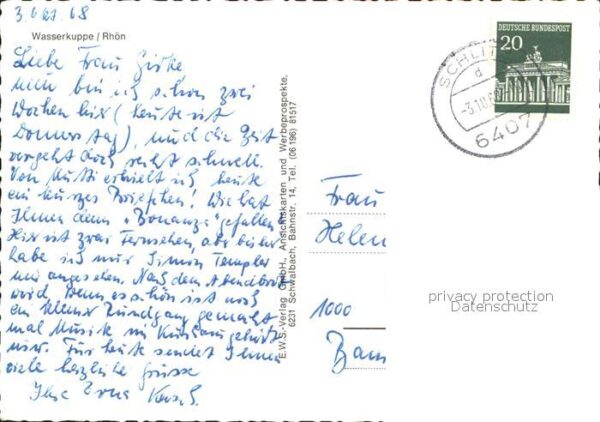 3. Okt 68
Wasserkuppe / Rhön
Liebe Frau
nun bin ich schon zwei
Wochen hier (heute ist
Donnerstag), und die Zeit
vergeht doch recht schnell.
Von Mutti erhielt ich heute
ein kurzes Briefchen! Wie hat
Ihnen denn "Bonanza" gefallen?
Hier ist zwar Fernsehen, aber bisher
habe ich nur Simon Templer
mir angesehen. Nach dem Abendbrot
wird, wenn es schön ist noch
ein kleiner Rundgang gemacht
mal Musik im Kurhaus gehört
usw. Für heute sendet Ihnen
viele herzliche Grüsse
Ihre Erna
E.W.S.-Verlag GmbH., Ansichtskarten und Werbeprospekte,
6231 Schwalbach, Bahnstr. 14, Tel. (06 196) 81517
DEUTSCHE BUNDESPOST
20
SCHLITZ
d
-3.10.68
6407
Frau
Helen
1000
privacy protection
Datenschutz